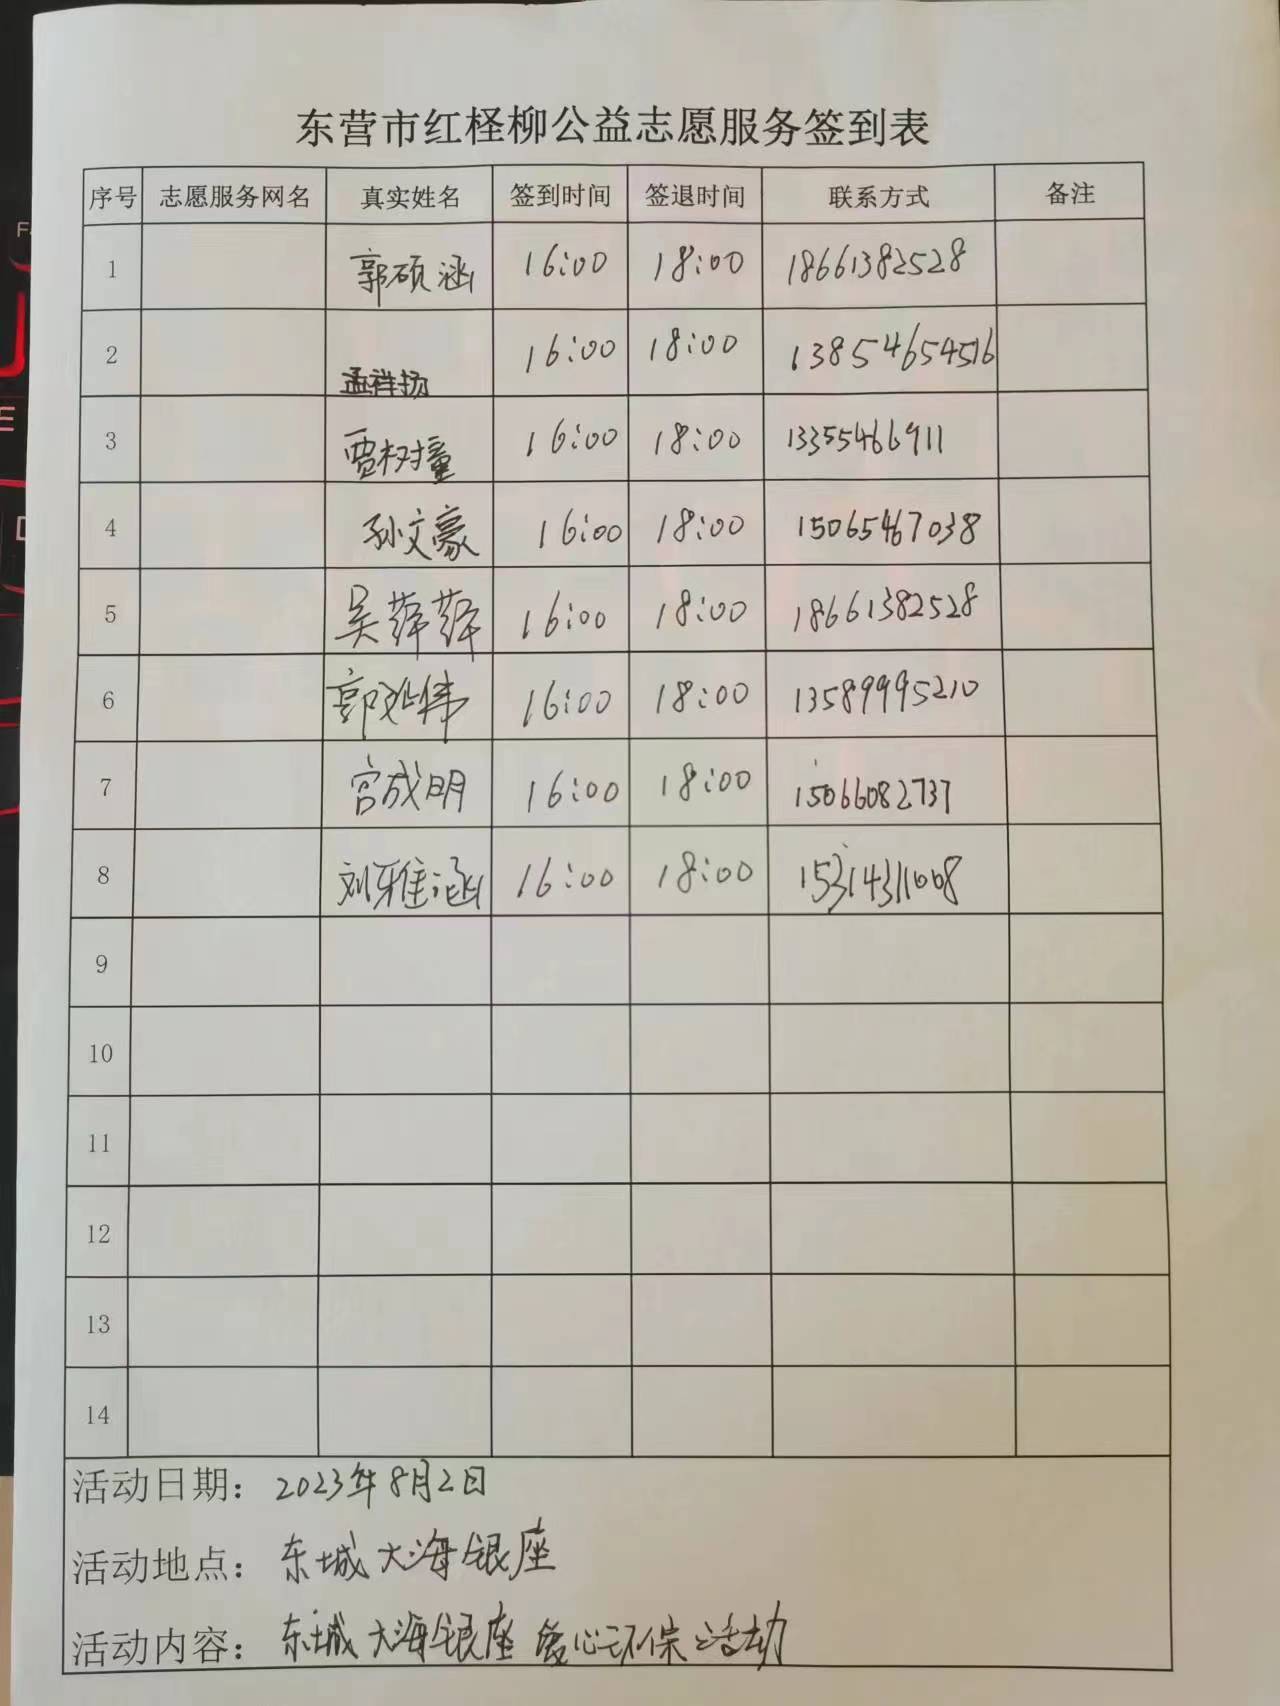 东营市红柽柳公益志愿服务签到表
序号 志愿服务网名 真实姓名 签到时间 签退时间 联系方式 备注
1 郭硕涵 16:00 18:00 18661382528
2 孟祥扬 16:00 18:00 13854654516
3 贾树童 16:00 18:00 13355466911
4 孙文豪 16:00 18:00 15065467038
5 吴萍萍 16:00 18:00 18661382528
6 郭延伟 16:00 18:00 13589995210
7 宫成明 16:00 18:00 15066082737
8 刘雅涵 16:00 18:00 15314311008
9
10
11
12
13
14
活动日期: 2023年8月2日
活动地点: 东城大海银座
活动内容: 东城大海银座爱心环保活动